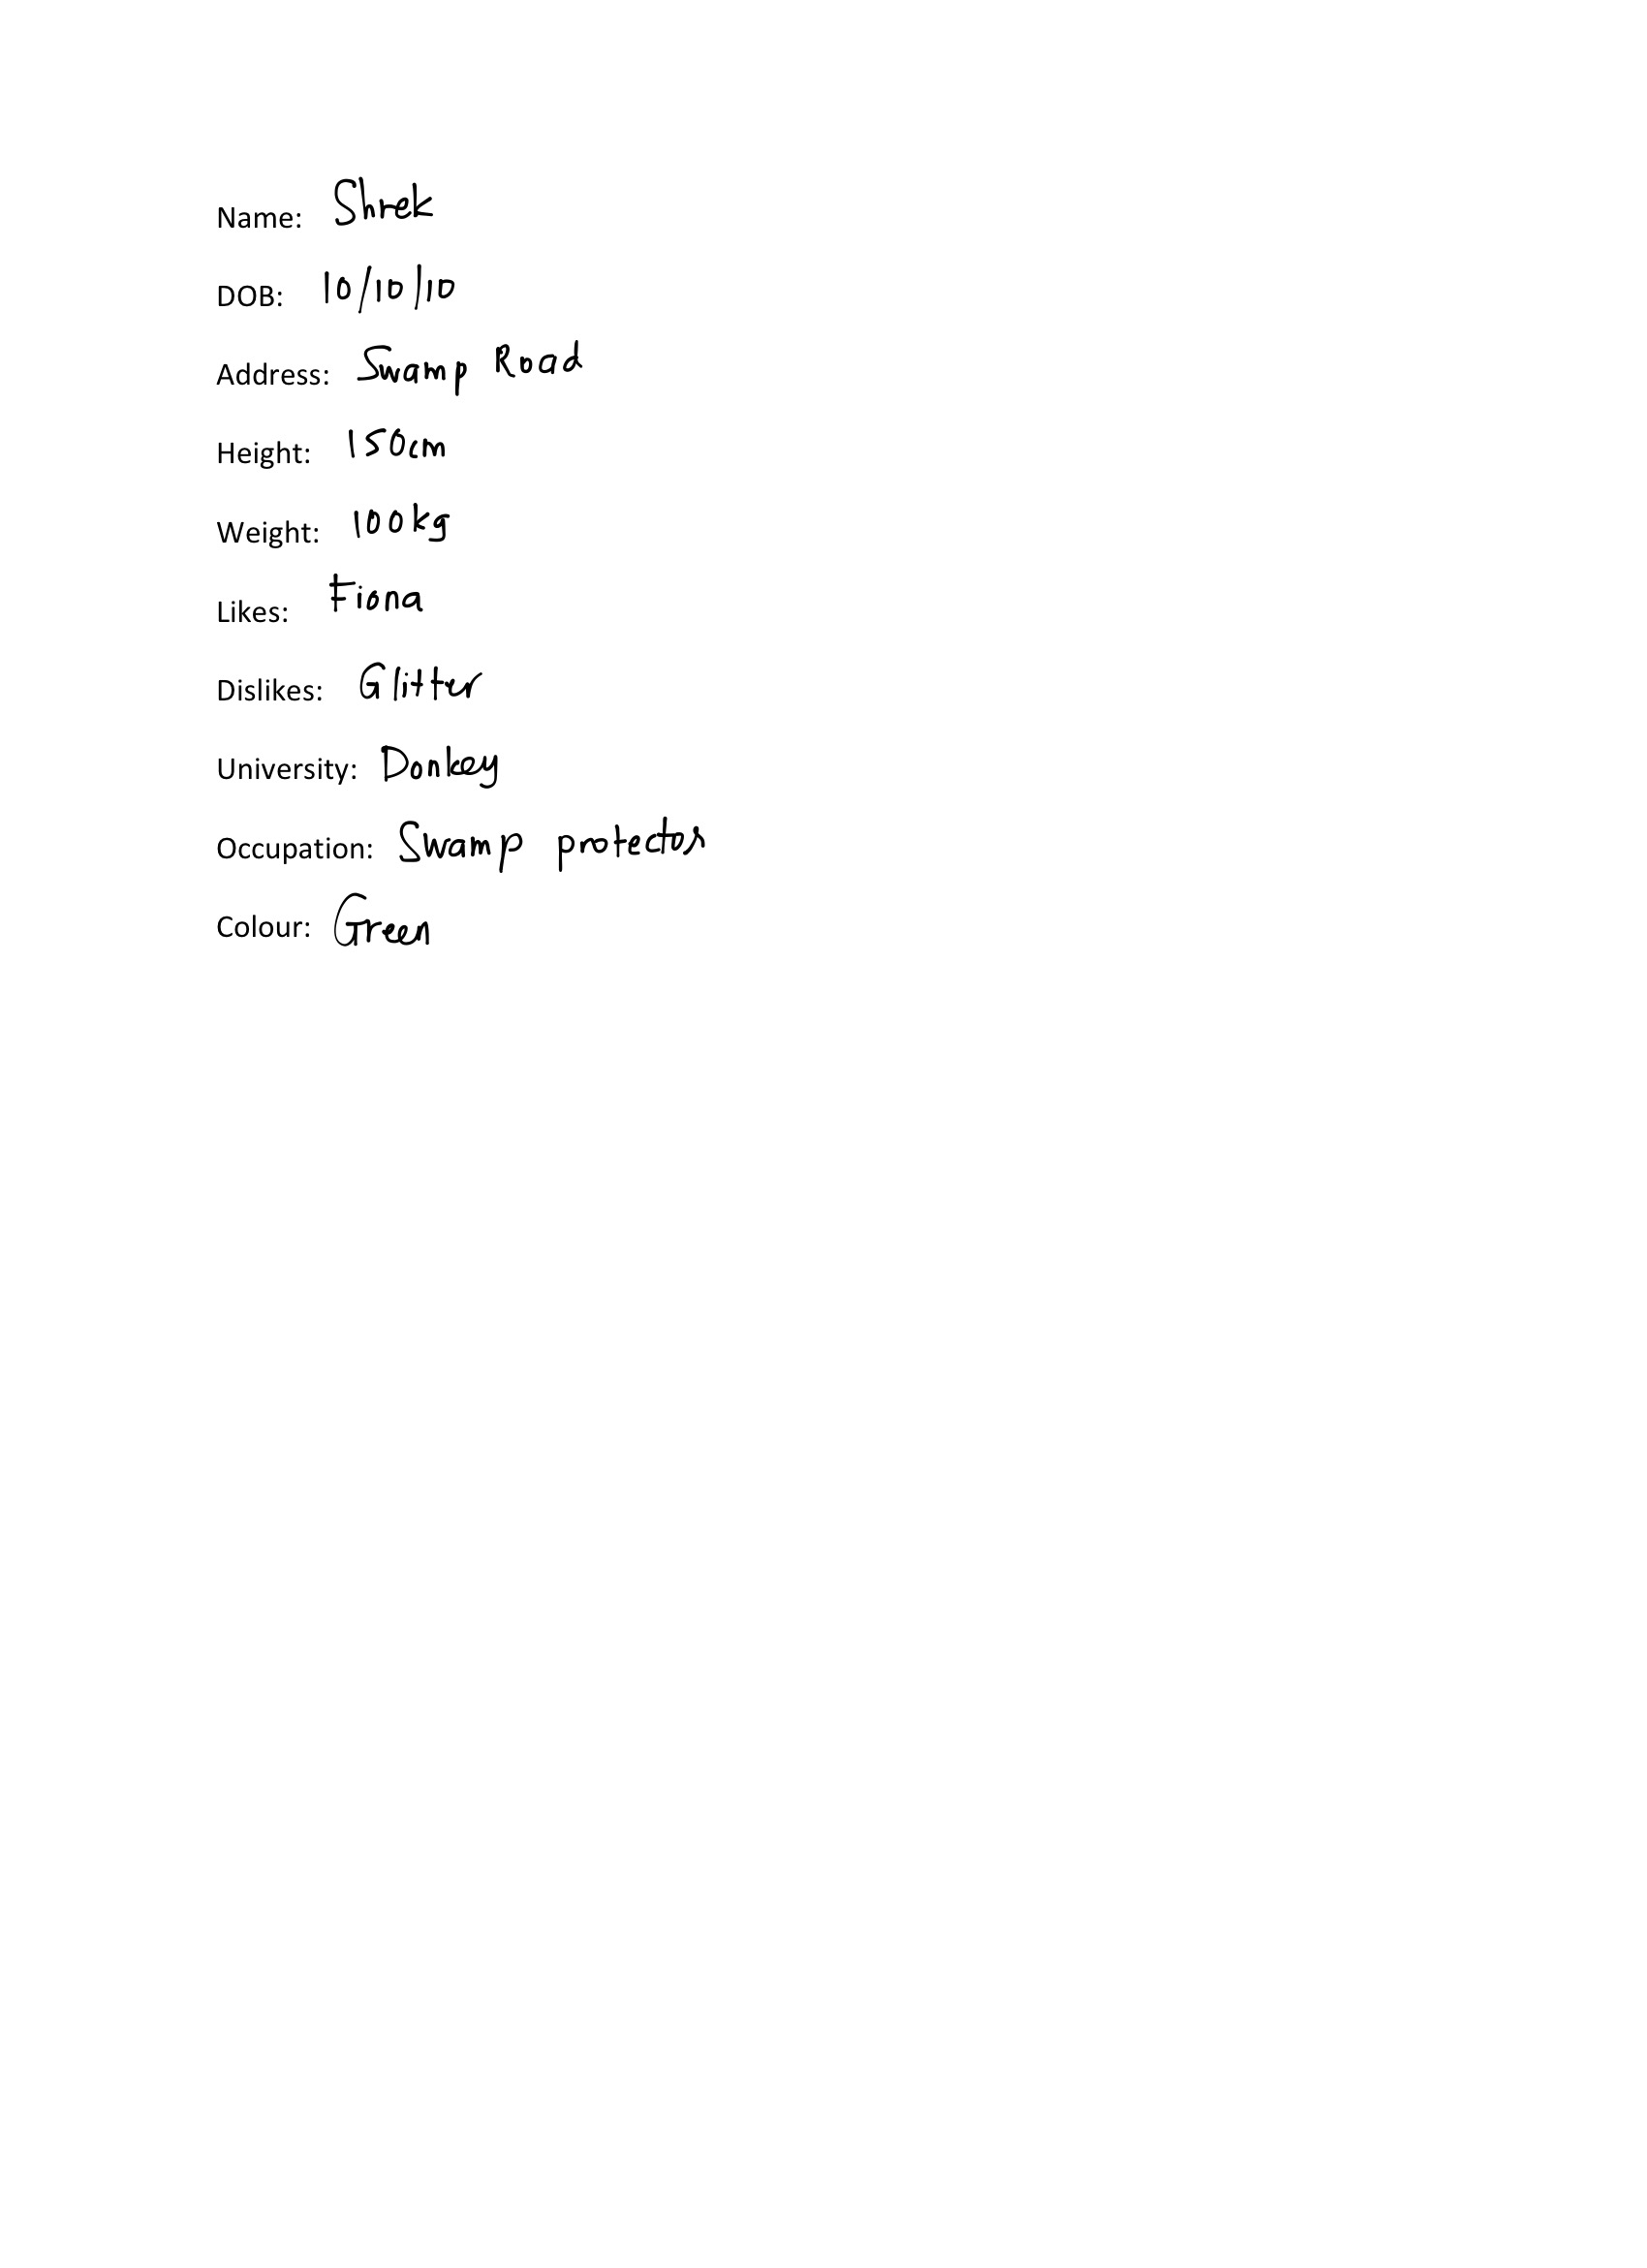 Name: Shrek
DOB: 10/10/10
Address: Swamp Road
Height: 150cm
Weight: 100kg
Likes: Fiona
Dislikes: Glitter
University: Donkey
Occupation: Swamp protector
Colour: Green